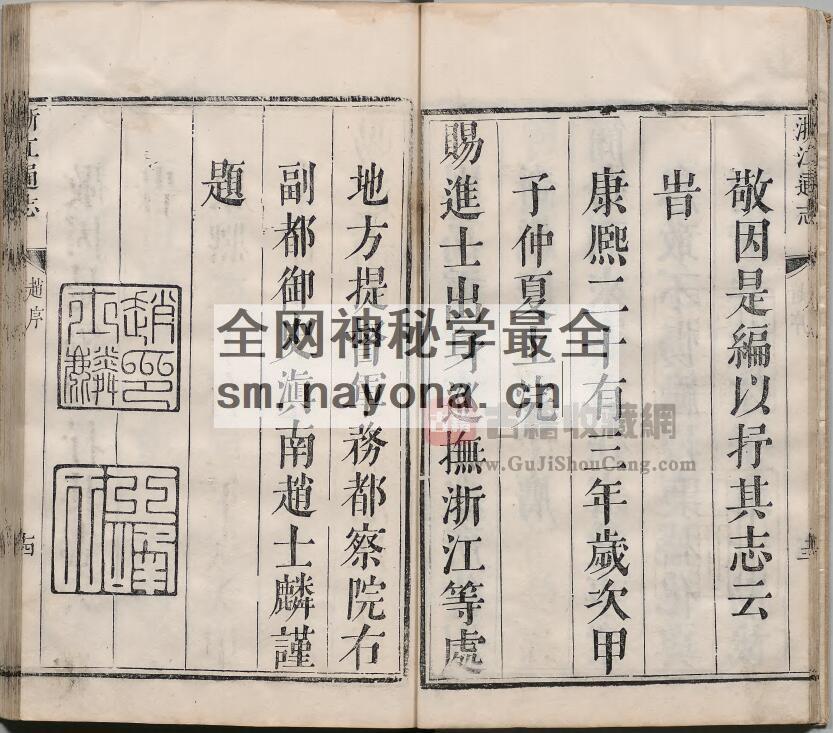 浙江通志
敬因是編以抒其志云
旹
康熙二十有三年歲次甲
子仲夏上浣
賜進士出身巡撫浙江等處
地方提督軍務都察院右
副都御史滇南趙士麟謹
題
趙印士麟
浙江通志
趙序
十四
全网神秘学最全
sm.nayona.cn
古籍收藏網
www.GuJiShouCang.com